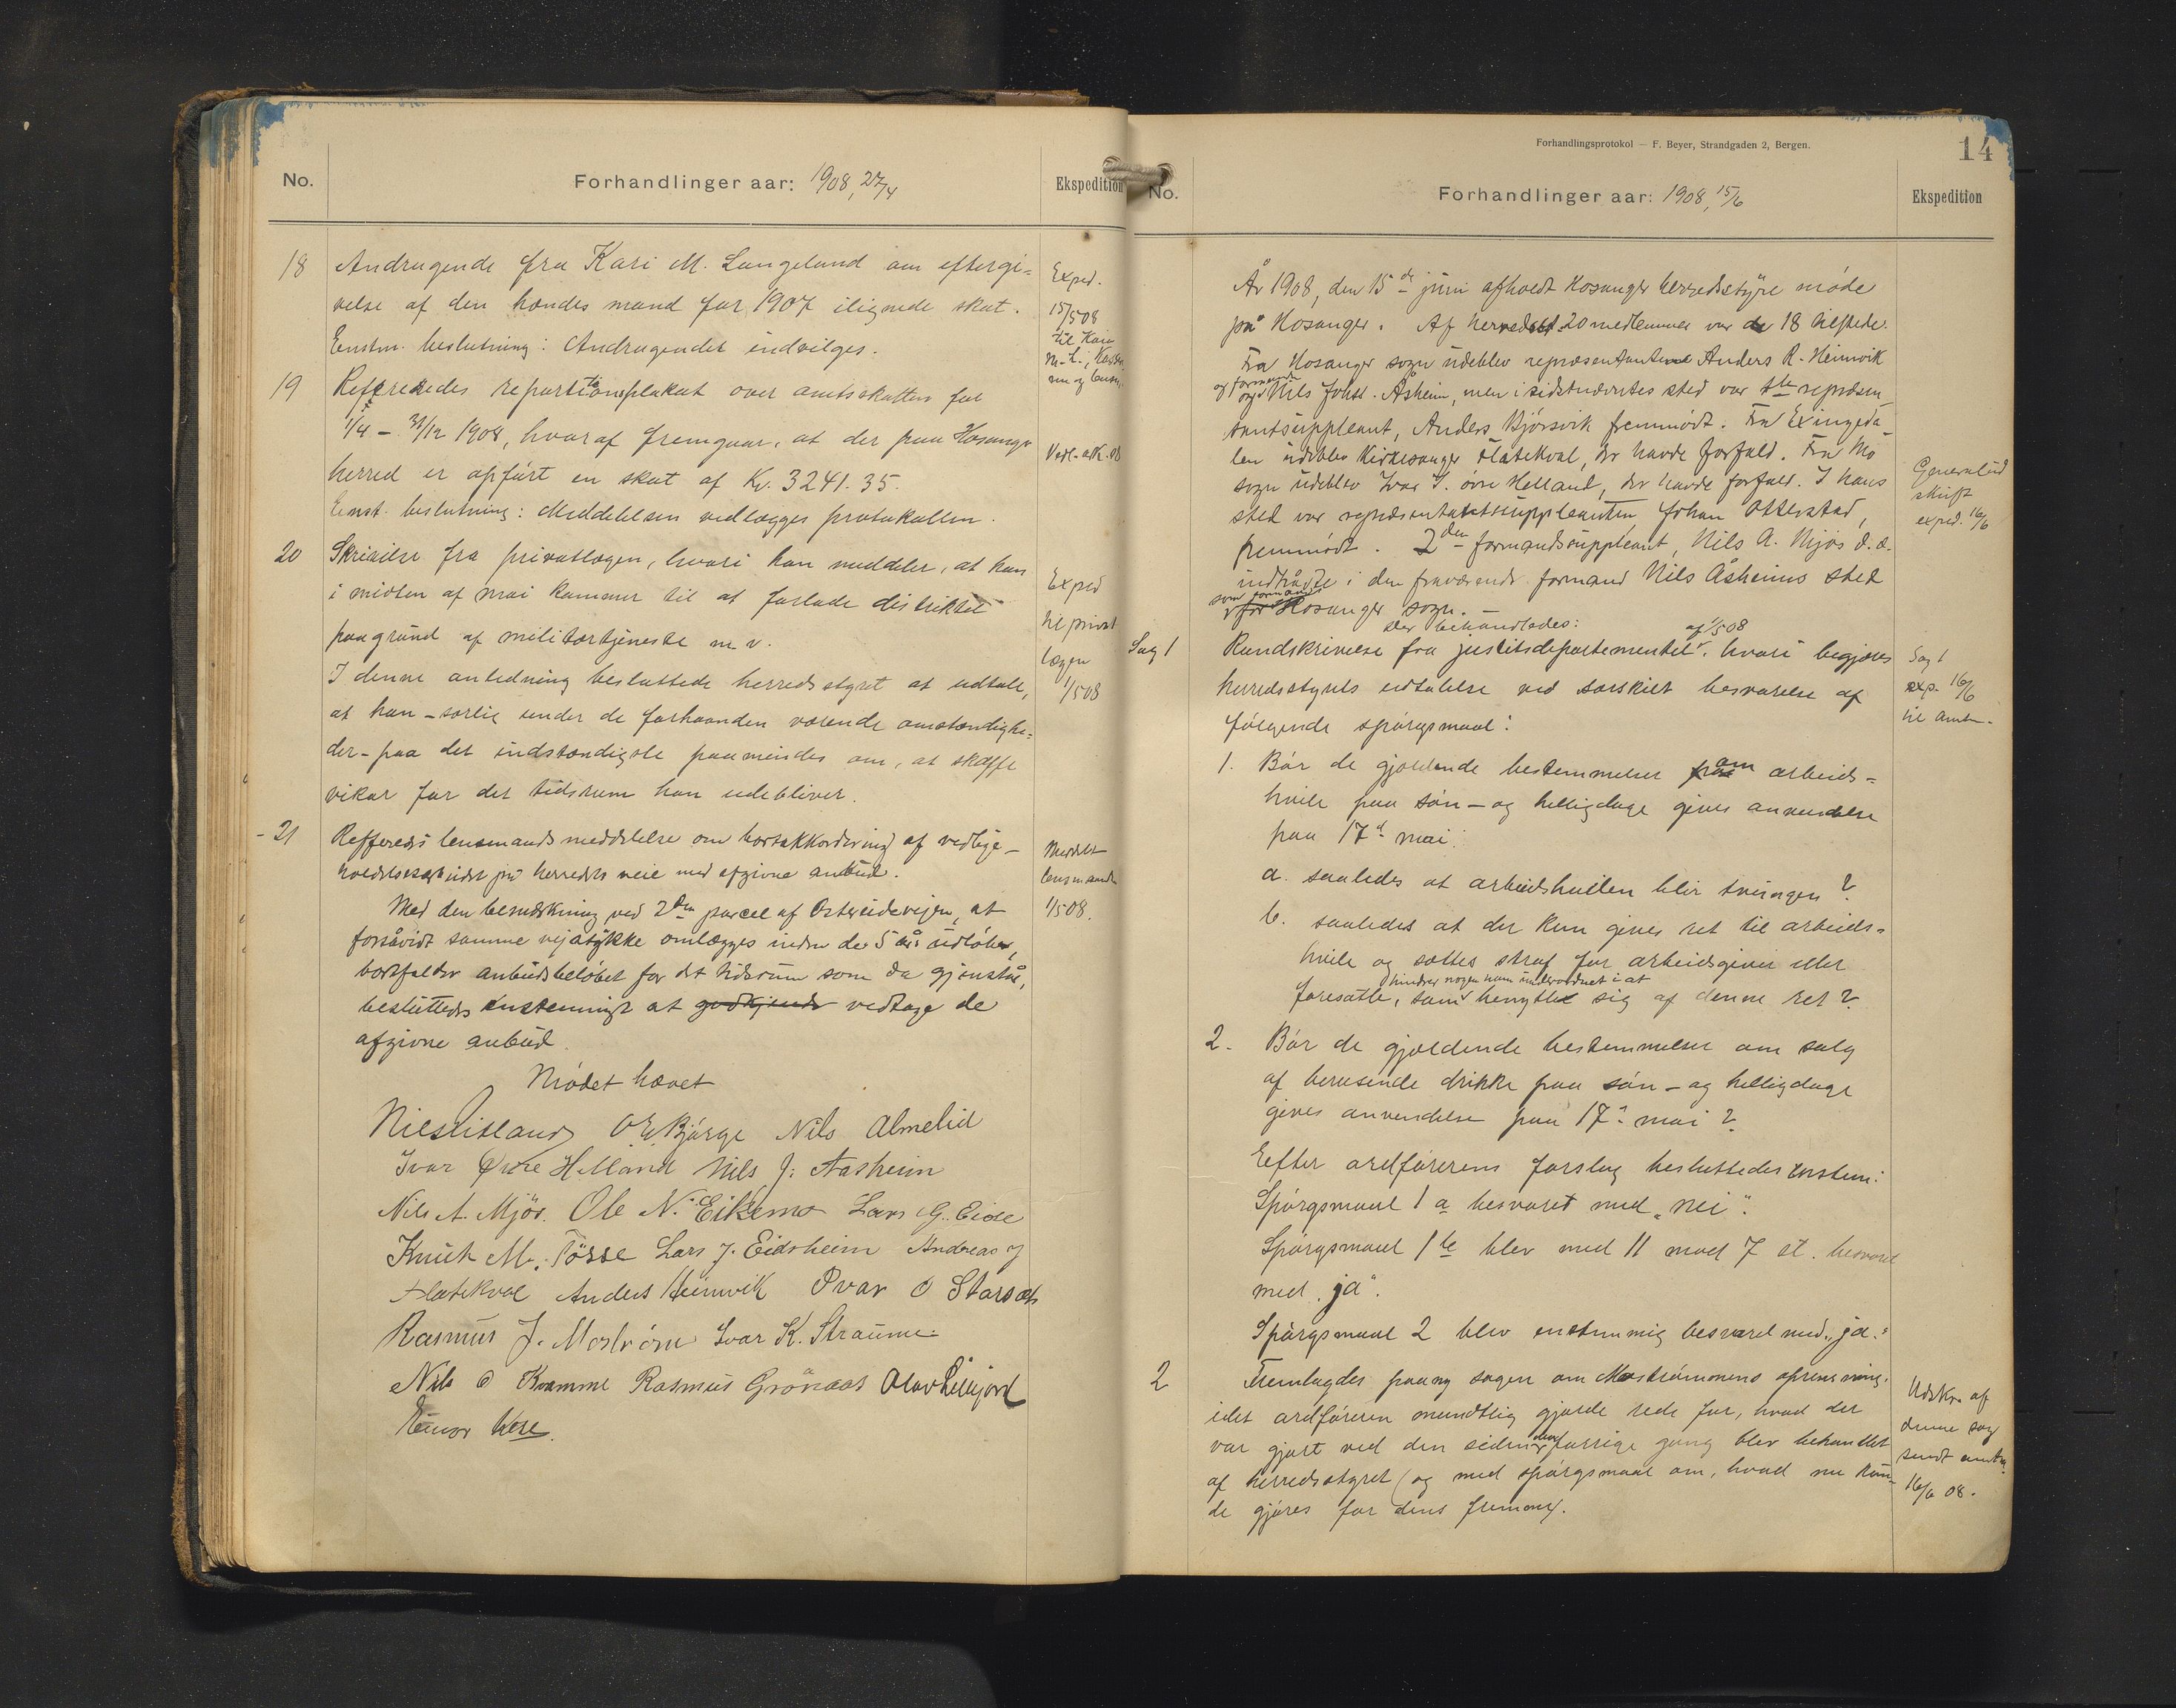 No.
Forhandlinger aar: 1908, 27/4
Ekspedition
18
Andragende fra Kari M. Langeland om eftergi=
velse af den hendes mand for 1907 ilignede skat.
Enstm. beslutning: Andragendet indvilges.
Exped.
15/5 08
til Kari
M. L., Kasse-
19
Reffereredes repartitionsplakat over amtsskatten for
1/4 – 31/12 1908, hvoraf fremgaar, at der paa Hosanger
herred er opført en skat af Kr. 3241.35.
Enst. beslutning: Meddelelsen vedlægges protokollen.
20
Skrivelse fra privatlægen, hvori han meddeler, at han
i midten af mai kommer til at forlade distriktet
paa grund af militærtjeneste m. v.
I denne anledning besluttede herredsstyret at udtale,
at han – særlig under de forhaanden værende omstændighe=
der – paa det indstændigste paamindes om, at skaffe
vikar for det tidsrum han udebliver.
Exped
til privat
lægen
1/5 08
21
Refferedes lensmands meddelelse om bortakkordering af vedlige-
holdelsesarbeidet på herredets veie med afgivne anbud.
Med den bemærkning ved 2den parcel af Ostereidevejen, at
forsåvidt samme vejstykke omlægges inden de 5 års udløber,
bortfalder anbudsbeløbet for det tidsrum som da gjenstår,
besluttedes enstemmigt at godkjende vedtage de
afgivne anbud.
Meddelt
lensmanden
1/5 08.
Mødet hævet
Nils Lisland O. E. Bjørge Nils Almelid
Ivar Øvre Helland Nils J. Aasheim
Nils A. Mjøs. Ole N. Eikemo Lars G. Eide
Knut M. Tøsse Lars J. Eidsheim Andreas J
Flatekval Anders Heimvik Ivar O Starsæt
Rasmus J. Mostrøm Ivar K. Straume
Nils O Kvamme Rasmus Grønaas Olav Lillejord
Forhandlingsprotokol — F. Beyer, Strandgaden 2, Bergen.
14
No.
Forhandlinger aar: 1908, 15/6
Ekspedition
År 1908, den 15de juni afholdt Hosanger herredsstyre møde
på Hosanger. Af herredets 20 medlemmer var de 18 tilstede.
Fra Hosanger sogn udeblev repræsentanten Anders R. Heimvik
og formand
og Nils Johs. Åsheim, men i sidstnævntes sted var 1ste repræsen-
tantsuppleant, Anders Bjørsvik fremmødt. Fra Exingeda-
len udeblev Kirkesanger Flatekval, der havde forfald. Fra Mo
sogn udeblev Ivar I. øvre Helland, der havde forfald. I hans
sted var repræsentantsuppleanten, Johan Otterstad,
fremmødt. 2den formandsuppleant, Nils A. Mjøs d. æ.
indtrådte i den fraværende formand Nils Åsheims sted
som formand
for Hosanger sogn. –
Generaludskrift
exped. 16/6
Der behandledes:
Sag 1
Rundskrivelse fra justitsdepartementet af 1/5 08, hvori begjæres
herredsstyrets udtalelse ved særskilt besvarelse af
følgende spørgsmaal:
Sag 1
exp. 16/6
til amtm.
1. Bør de gjældende bestemmelser fra om arbeids=
hvile paa søn- og helligdage gives anvendelse
paa 17d mai:
a. saaledes at arbeidshvilen blir tvungen?
b. saaledes at der kun gives ret til arbeids=
hvile og sættes straf for arbeidsgiver eller
hindrer nogen ham underordnet i at
foresatte, som benytte sig af denne ret?
2. Bør de gjældende bestemmelser om salg
af berusende drikke paa søn- og helligdage
gives anvendelse paa 17d mai?
Eefter ordførerens forslag besluttedes enstem:
Spørgsmaal 1 a besvaret med „nei“.
Spørgsmaal 1 b blev med 11 mod 7 st. besvaret
med „ja“.
Spørgsmaal 2 blev enstemmig besvaret med „ja“.
2
Fremlagdes paany sagen om Mostrømmens oprensning,
idet ordføreren mundtlig gjorde rede for, hvad der
var gjort ved den siden den forrige gang blev behandlet
af herredsstyret (og med spørgsmaal om, hvad nu kun-
de gjøres for dens fremme).
Udskr. af
denne sag
sendt amtm.
16/6 08.